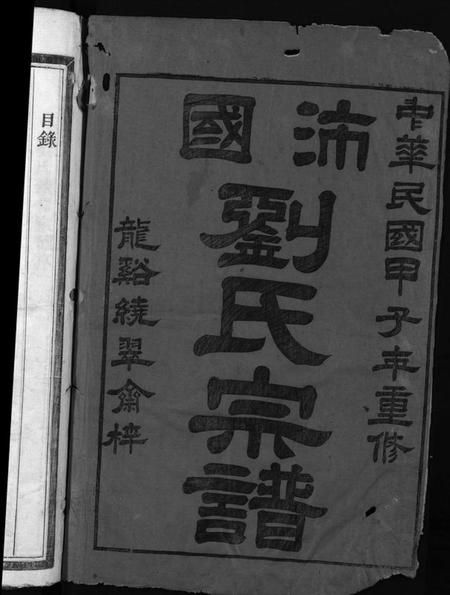 中華民國甲子年重修
沛國
劉氏宗譜
龍谿繞翠齋梓
目錄